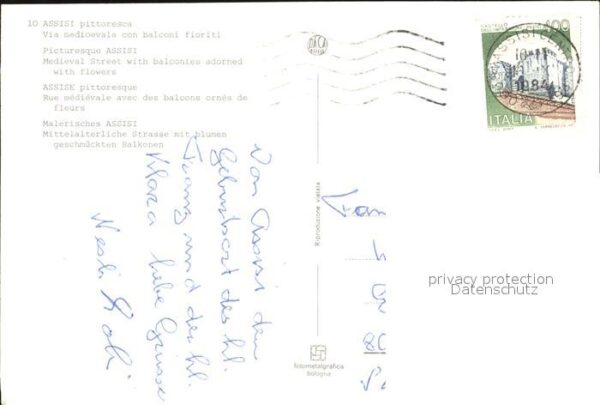 10 ASSISI pittoresca
Via medioevale con balconi fioriti
Picturesque ASSISI
Medieval Street with balconies adorned
with flowers
ASSISE pittoresque
Rue médiévale avec des balcons ornés de
fleurs
Malerisches ASSISI
Mittelalterliche Strasse mit blumen
geschmückten Balkonen
Von Assisi dem
Geburtsort des hl.
Franz und der hl.
Klara liebe Grüsse
Riproduzione vietata
fotometalgrafica
bologna
400
ASSISI
1984
ITALIA
privacy protection
Datenschutz